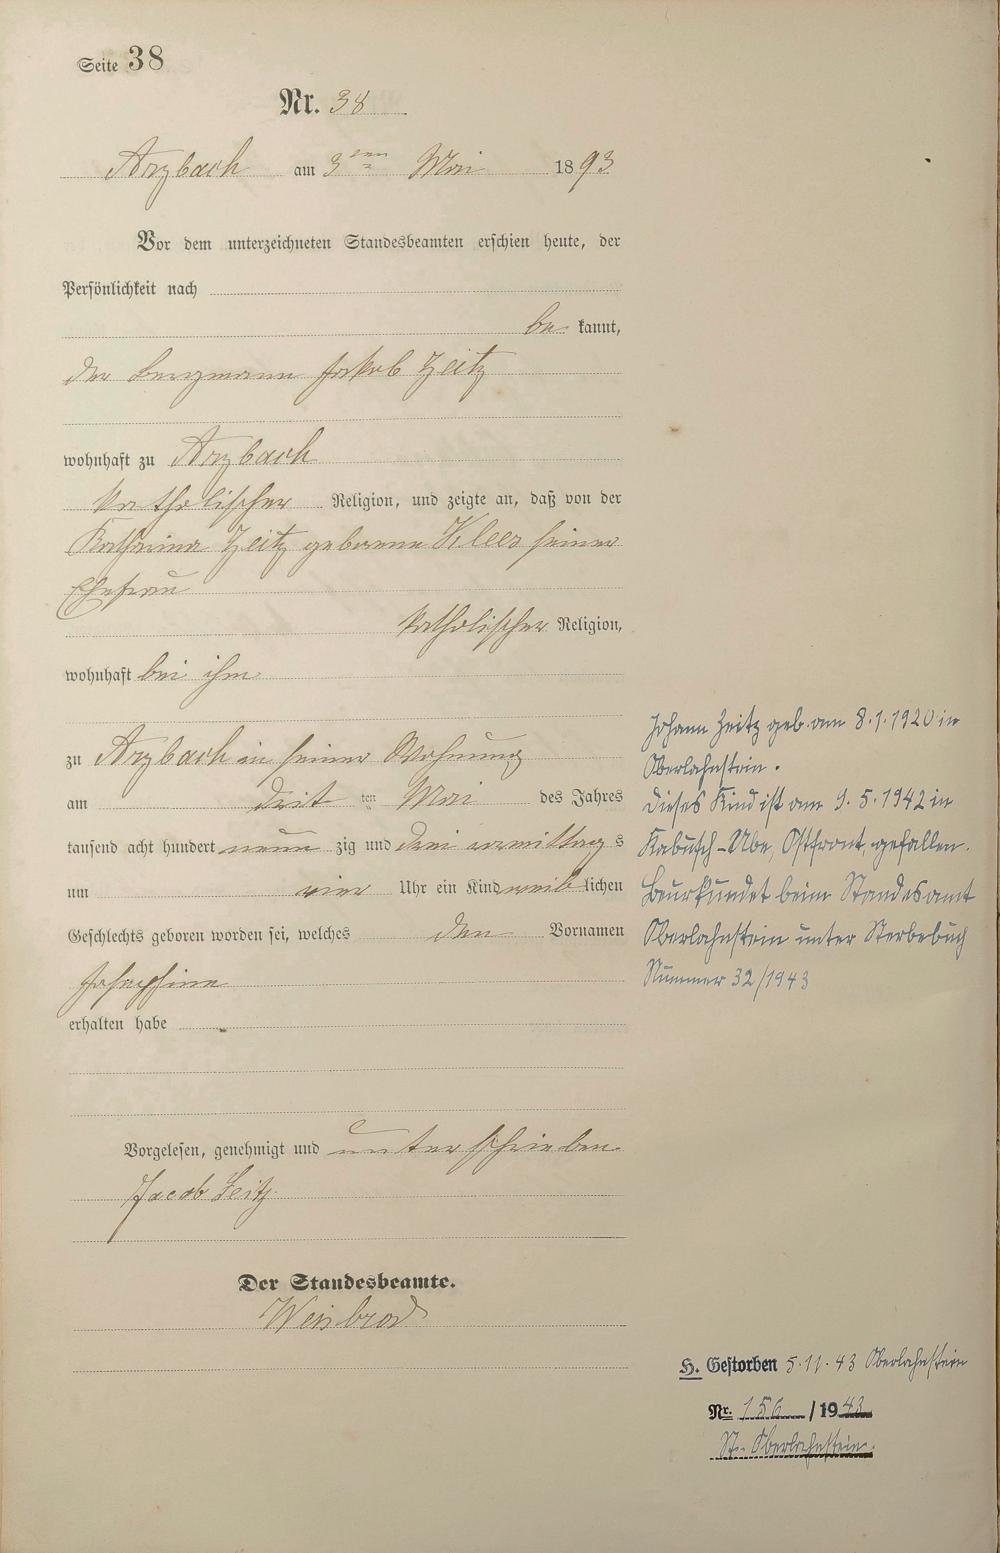 Seite 38
Nr. 38
Arzbach am 3ten Mai 1893
Vor dem unterzeichneten Standesbeamten erschien heute, der
Persönlichkeit nach
be kannt,
der Bergmann Jakob Zeitz
wohnhaft zu Arzbach
katholischer Religion, und zeigte an, daß von der
Katharina Zeitz geborene Klees seiner
Ehefrau
katholischer Religion,
wohnhaft bei ihm
zu Arzbach in seiner Wohnung
am drit ten Mai des Jahres
tausend acht hundert neun zig und drei vormittag s
um vier Uhr ein Kind weib lichen
Geschlechts geboren worden sei, welches den Vornamen
Josephine
erhalten habe
Vorgelesen, genehmigt und unterschrieben
Jacob Zeitz
Der Standesbeamte.
Weisbrod
Johann Zeitz geb. am 8.1.1920 in
Oberlahnstein.
Dieses Kind ist am 9.5.1942 in
Kabusch-Ube, Ostfront, gefallen.
Beurkundet beim Standesamt
Oberlahnstein unter Sterbebuch
Nummer 32/1943
H. Gestorben 5.11.43 Oberlahnstein
Nr. 156/1943
St. Oberlahnstein.